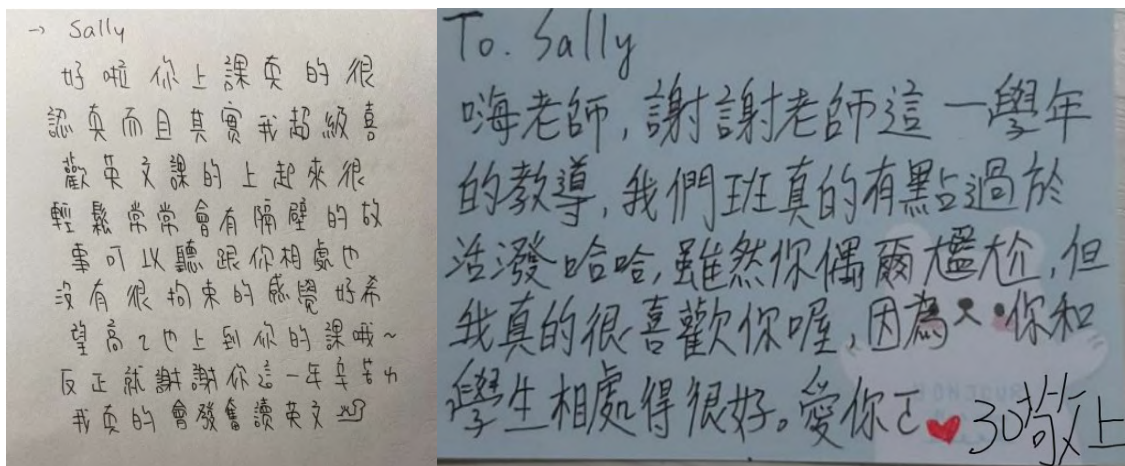 → Sally
好啦你上課真的很
認真而且其實我超級喜
歡英文課的上起來很
輕鬆常常會有隔壁的故
事可以聽跟你相處也
沒有很拘束的感覺好希
望高二也上到你的課哦~
反正就謝謝你這一年辛苦ㄌ
我真的會發奮讀英文
To. Sally
嗨老師,謝謝老師這一學年
的教導,我們班真的有點過於
活潑哈哈,雖然你偶爾尷尬,但
我真的很喜歡你喔,因為你和
學生相處得很好。愛你ㄛ♥30敬上